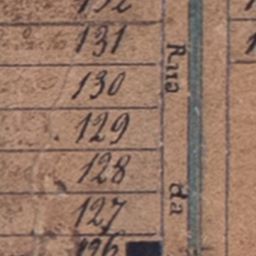 132
131
130
129
128
127
126
Rua da